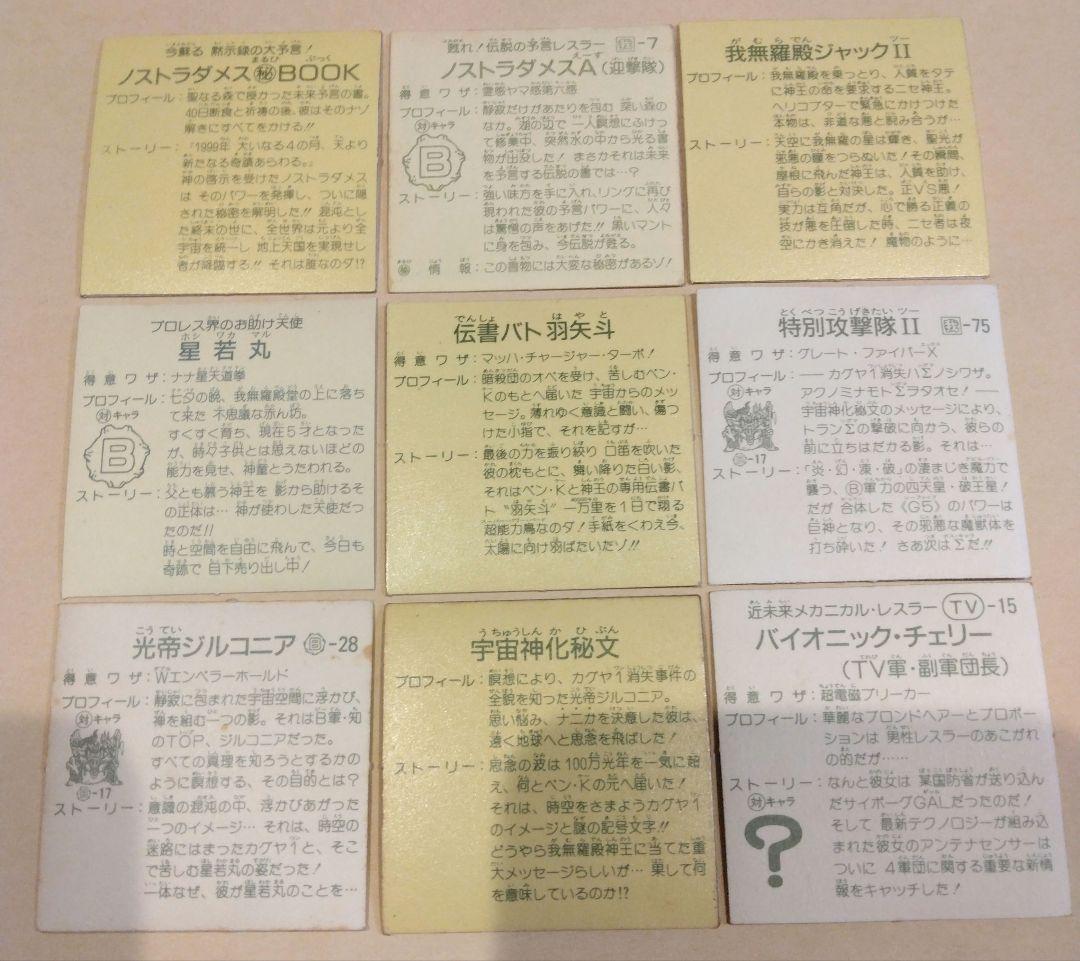 今蘇る 黙示録の大予言！
ノストラダメス㊙BOOK
プロフィール：聖なる森で授かった未来予言の書。
40日断食と祈祷の後、彼はそのナゾ
解きにすべてをかける!!
ストーリー：「1999年 大いなる4の月、天より
新たなる奇蹟あらわる。」
神の啓示を受けたノストラダメス
は そのパワーを発揮し、ついに隠
された秘密を解明した!! 混沌とし
た終末の世に、全世界は元より全
宇宙を統一し 地上天国を実現せし
者が降臨する!! それは誰なのダ!?
甦れ！伝説の予言レスラー
-7
ノストラダメスA（迎撃隊）
得意ワザ：霊感ヤマ感第六感
プロフィール：静寂だけがあたりを包む 深い森の
なか。湖の辺で 一人瞑想にふけっ
て修業中、突然水の中から光る書
物が出没した！ まさかそれは未来
を予言する伝説の書では…？
対キャラ
B
ストーリー：強い味方を手に入れ、リングに再び
現われた彼の予言パワーに、人々
は驚愕の声をあげた!! 黒いマント
に身を包み、今伝説が甦る。
㊙情報：この書物には大変な秘密があるゾ！
我無羅殿ジャックⅡ
プロフィール：我無羅殿を乗っとり、人質をタテ
に神王の命を要求するニセ神王。
ヘリコプターで緊急にかけつけた
本物は、非道な悪と睨み合うが…
ストーリー：天空に我無羅の星は輝き、聖光が
邪悪の瞳をつらぬいた！その瞬間、
屋根に飛んだ神王は、人質を助け、
自らの影と対決した。正VS悪！
実力は互角だが、心で勝る正義の
技が悪を圧倒した時、ニセ者は夜
空にかき消えた！ 魔物のように…
プロレス界のお助け天使
星若丸
得意ワザ：ナナ星天道拳
プロフィール：七夕の晩、我無羅殿堂の上に落ち
て来た 不思議な赤ん坊。
すくすく育ち、現在5才となった
が、時々子供とは思えないほどの
能力を見せ、神童とうたわれる。
対キャラ
B
ストーリー：父とも慕う神王を 影から助けるそ
の正体は… 神が使わした天使だっ
たのだ!!
時と空間を自由に飛んで、今日も
奇跡で 目下売り出し中！
伝書バト 羽矢斗
得意ワザ：マッハ・チャージャー・ターボ！
プロフィール：暗殺団のオペを受け、苦しむベン・
Kのもとへ届いた 宇宙からのメッ
セージ。薄れゆく意識と闘い、傷つ
けた小指で、それを記すが…
ストーリー：最後の力を振り絞り 口笛を吹いた
彼の枕もとに、舞い降りた白い影、
それはベン・Kと神王の専用伝書バ
ト“羽矢斗” 一万里を1日で翔る
超能力鳥なのダ！手紙をくわえ今、
太陽に向け 羽ばたいたゾ!!
特別攻撃隊Ⅱ
-75
得意ワザ：グレート・ファイバーX
プロフィール：── カグヤ1消失ハΣノシワザ。
アクノミナモトΣラタオセ！──
宇宙神化秘文のメッセージにより、
トランΣの撃破に向かう、彼らの
前に立ちはだかる影。それは…
対キャラ
-17
ストーリー：「炎・幻・凍・破」の凄まじき魔力で
襲う、Ⓑ軍力の四天皇・破王星！
だが 合体した〈G5〉のパワーは
巨神となり、その邪悪な魔獣体を
打ち砕いた！ さあ次はΣだ!!
光帝ジルコニア Ⓑ-28
得意ワザ：Wエンペラーホールド
プロフィール：静寂に包まれた宇宙空間に浮かび、
禅を組む一つの影。それはB軍・知
のTOP、ジルコニアだった。
すべての真理を知ろうとするかの
ように瞑想する、その目的とは？
対キャラ
-17
ストーリー：意識の混沌の中、浮かびあがった
一つのイメージ… それは、時空の
迷路にはまったカグヤ1と、そこ
で苦しむ星若丸の姿だった！
一体なぜ、彼が星若丸のことを…
宇宙神化秘文
プロフィール：瞑想により、カグヤ1消失事件の
全貌を知った光帝ジルコニア。
思い悩み、ナニかを決意した彼は、
遠く地球へと思念を飛ばした！
ストーリー：思念の波は100万光年を一気に超
え、何とベン・Kの元へ届いた！
それは、時空をさまようカグヤ1
のイメージと謎の記号文字!!
どうやら我無羅殿神王に当てた重
大メッセージらしいが… 果して何
を意味しているのか!?
近未来メカニカル・レスラー TV-15
バイオニック・チェリー
（TV軍・副軍団長）
得意ワザ：超電磁ブリーカー
プロフィール：華麗なブロンドヘアーとプロポー
ションは 男性レスラーのあこがれ
の的だが……
ストーリー：なんと彼女は 某国防省が送り込ん
だサイボーグGALだったのだ！
そして 最新テクノロジーが組み込
まれた彼女のアンテナセンサーは
ついに 4軍団に関する重要な新情
報をキャッチした！
対キャラ
?